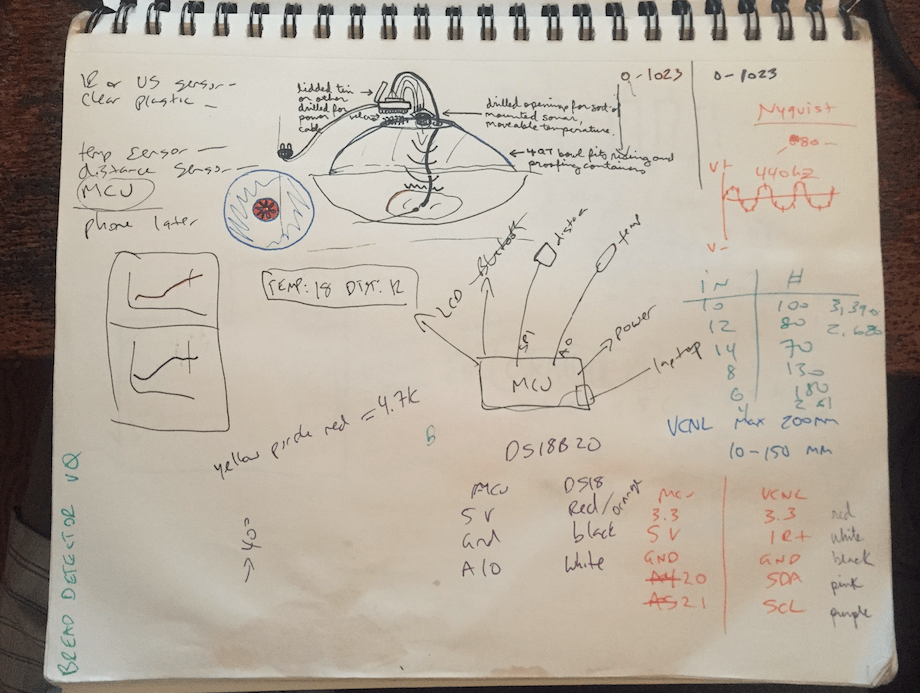 IR or US sensor -
clear plastic -
temp sensor -
distance sensor -
MCU
phone later
lidded tin
or other
drilled for
power
cable
drilled openings for sort of
mounted sonar,
moveable temperature.
4QT bowl fits rising and
proofing containers
0-1023
0-1023
Nyquist
80-
440hz
V+
V-
TEMP: 18 DIST: 12
LCD
Bluetooth
distan
temp
SPI
A0
MCU
power
laptop
in #
10 100 3,390
12 80 2,680
14 70
8 130
6 180
4 241
VCNL Max 200mm
10-150 mm
yellow purple red = 4.7K
B
DS18B20
MCU DS18
5V Red/orange
Gnd black
A10 White
MCU VCNL
3.3 3.3 red
5V IR+ white
GND GND black
A4 20 SDA pink
A5 21 SCL purple
→ 40"
BREAD DETECTOR V∅